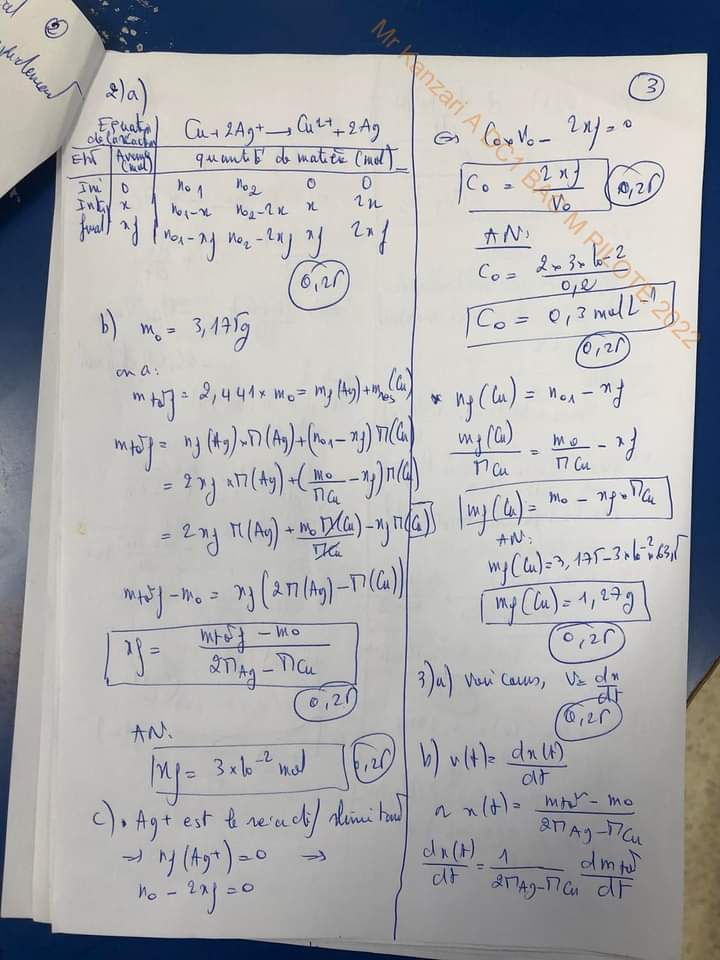 2)a)
Equation de la réaction Cu + 2Ag+ → Cu2+ + 2Ag
EM Avanc (mol) quantité de matière (mol)
Ini 0 n01 n02 0 0
Inter x n01-x n02-2x x 2x
final xf n01-xf n02-2xf xf 2xf
0,25
b) m0 = 3,175g
on a:
mtotf = 2,441 × m0 = mf(Ag) + mres(Cu)
mtotf = nf(Ag) × M(Ag) + (n01 - xf) M(Cu)
= 2xf × M(Ag) + (m0/MCu - xf) M(Cu)
= 2xf M(Ag) + m0 M(Cu)/MCu - xf M(Cu)
mtotf - m0 = xf (2M(Ag) - M(Cu))
xf = mtotf - m0 / 2MAg - MCu
0,25
AN:
xf = 3×10-2 mol 0,25
c) • Ag+ est le réactif limitant
⇒ nf(Ag+) = 0 ⇒
n0 - 2xf = 0
3
⇔ C0 × V0 - 2xf = 0
C0 = 2xf / V0 0,25
AN:
C0 = 2×3×10-2 / 0,2
C0 = 0,3 mol L-1
0,25
* nf(Cu) = n01 - xf
mf(Cu)/MCu = m0/MCu - xf
mf(Cu) = m0 - xf × MCu
AN:
mf(Cu) = 3,175 - 3×10-2 × 63,5
mf(Cu) = 1,27g
0,25
3)a) Voir cours, V = dx/dt
0,25
b) v(t) = dx(t)/dt
or x(t) = mtot - m0 / 2MAg - MCu
dx(t)/dt = 1/2MAg-MCu dmtot/dt
Mr Kanzari A DC1 BAC M PILOTE 2022
2